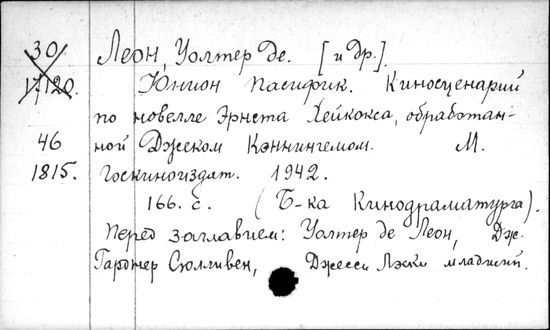 30 Леон, Уолтер де. [и др.].
17/120. Юнион Пасифик. Киносценарий
по новелле Эрнста Хейкокса, обработан-
46 ной Джеком Кэннингемом. М.
1815. Госкиноиздат. 1942.
166. с. (Б-ка Кинодраматурга).
Перед заглавием: Уолтер де Леон, Дж.
Гарднер Сюлливен, Джесси Лэски младший.